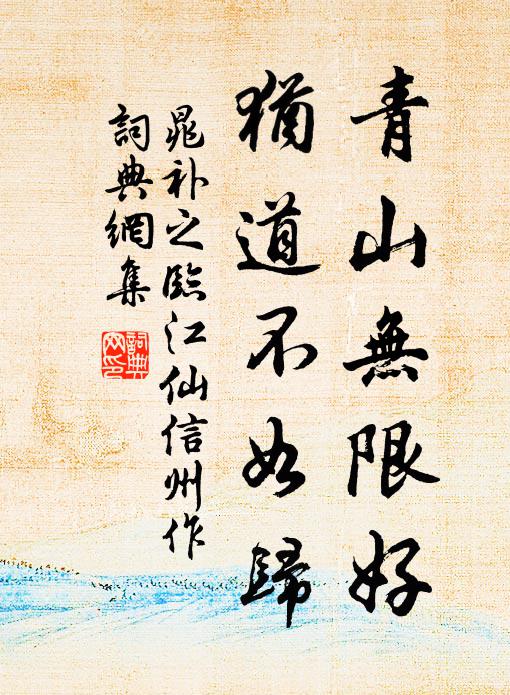 青山無限好
猶道不如歸
晁补之臨江仙信州作
詞典網集
詞典網印